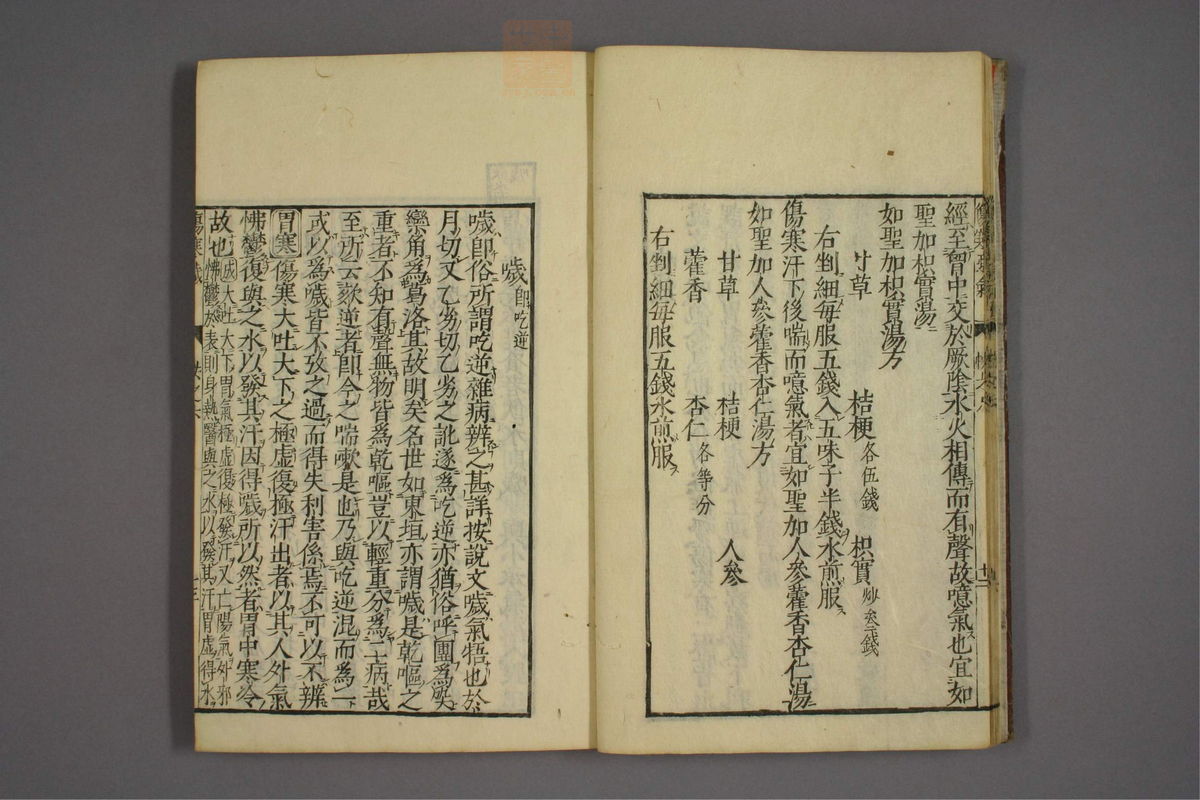 經至胷中交於厥陰水火相傳而有聲故噫氣也宜如
聖加枳實湯
如聖加枳實湯方
甘草 桔梗各伍錢 枳實炒叁錢
右剉細每服五錢入五味子半錢水煎服
傷寒汗下後喘而噫氣者宜如聖加人參藿香杏仁湯
如聖加人參藿香杏仁湯方
甘草 桔梗 人參
藿香 杏仁各等分
右剉細每服五錢水煎服
噦即吃逆
噦即俗所謂吃逆雜病辨之甚詳按說文噦氣牾也於
月切又乙劣切乙劣之訛遂爲吃逆亦猶俗呼團爲突
欒角爲葛洛其故明矣名世如東垣亦謂噦是乾嘔之
重者不知有聲無物皆爲乾嘔豈以輕重分爲二病哉
至所云欬逆者即今之喘嗽是也乃與吃逆混而爲一
或以爲噦皆不攷之過而得失利害係焉不可以不辨
胃寒傷寒大吐大下之極虛復極汗出者以其人外氣
怫鬱復與之水以發其汗因得噦所以然者胃中寒冷
故也或大吐大下胃氣極虛復極發汗又亡陽氣外邪
怫鬱於表則身熱醫與之水以發其汗胃虛得水
傷寒噦